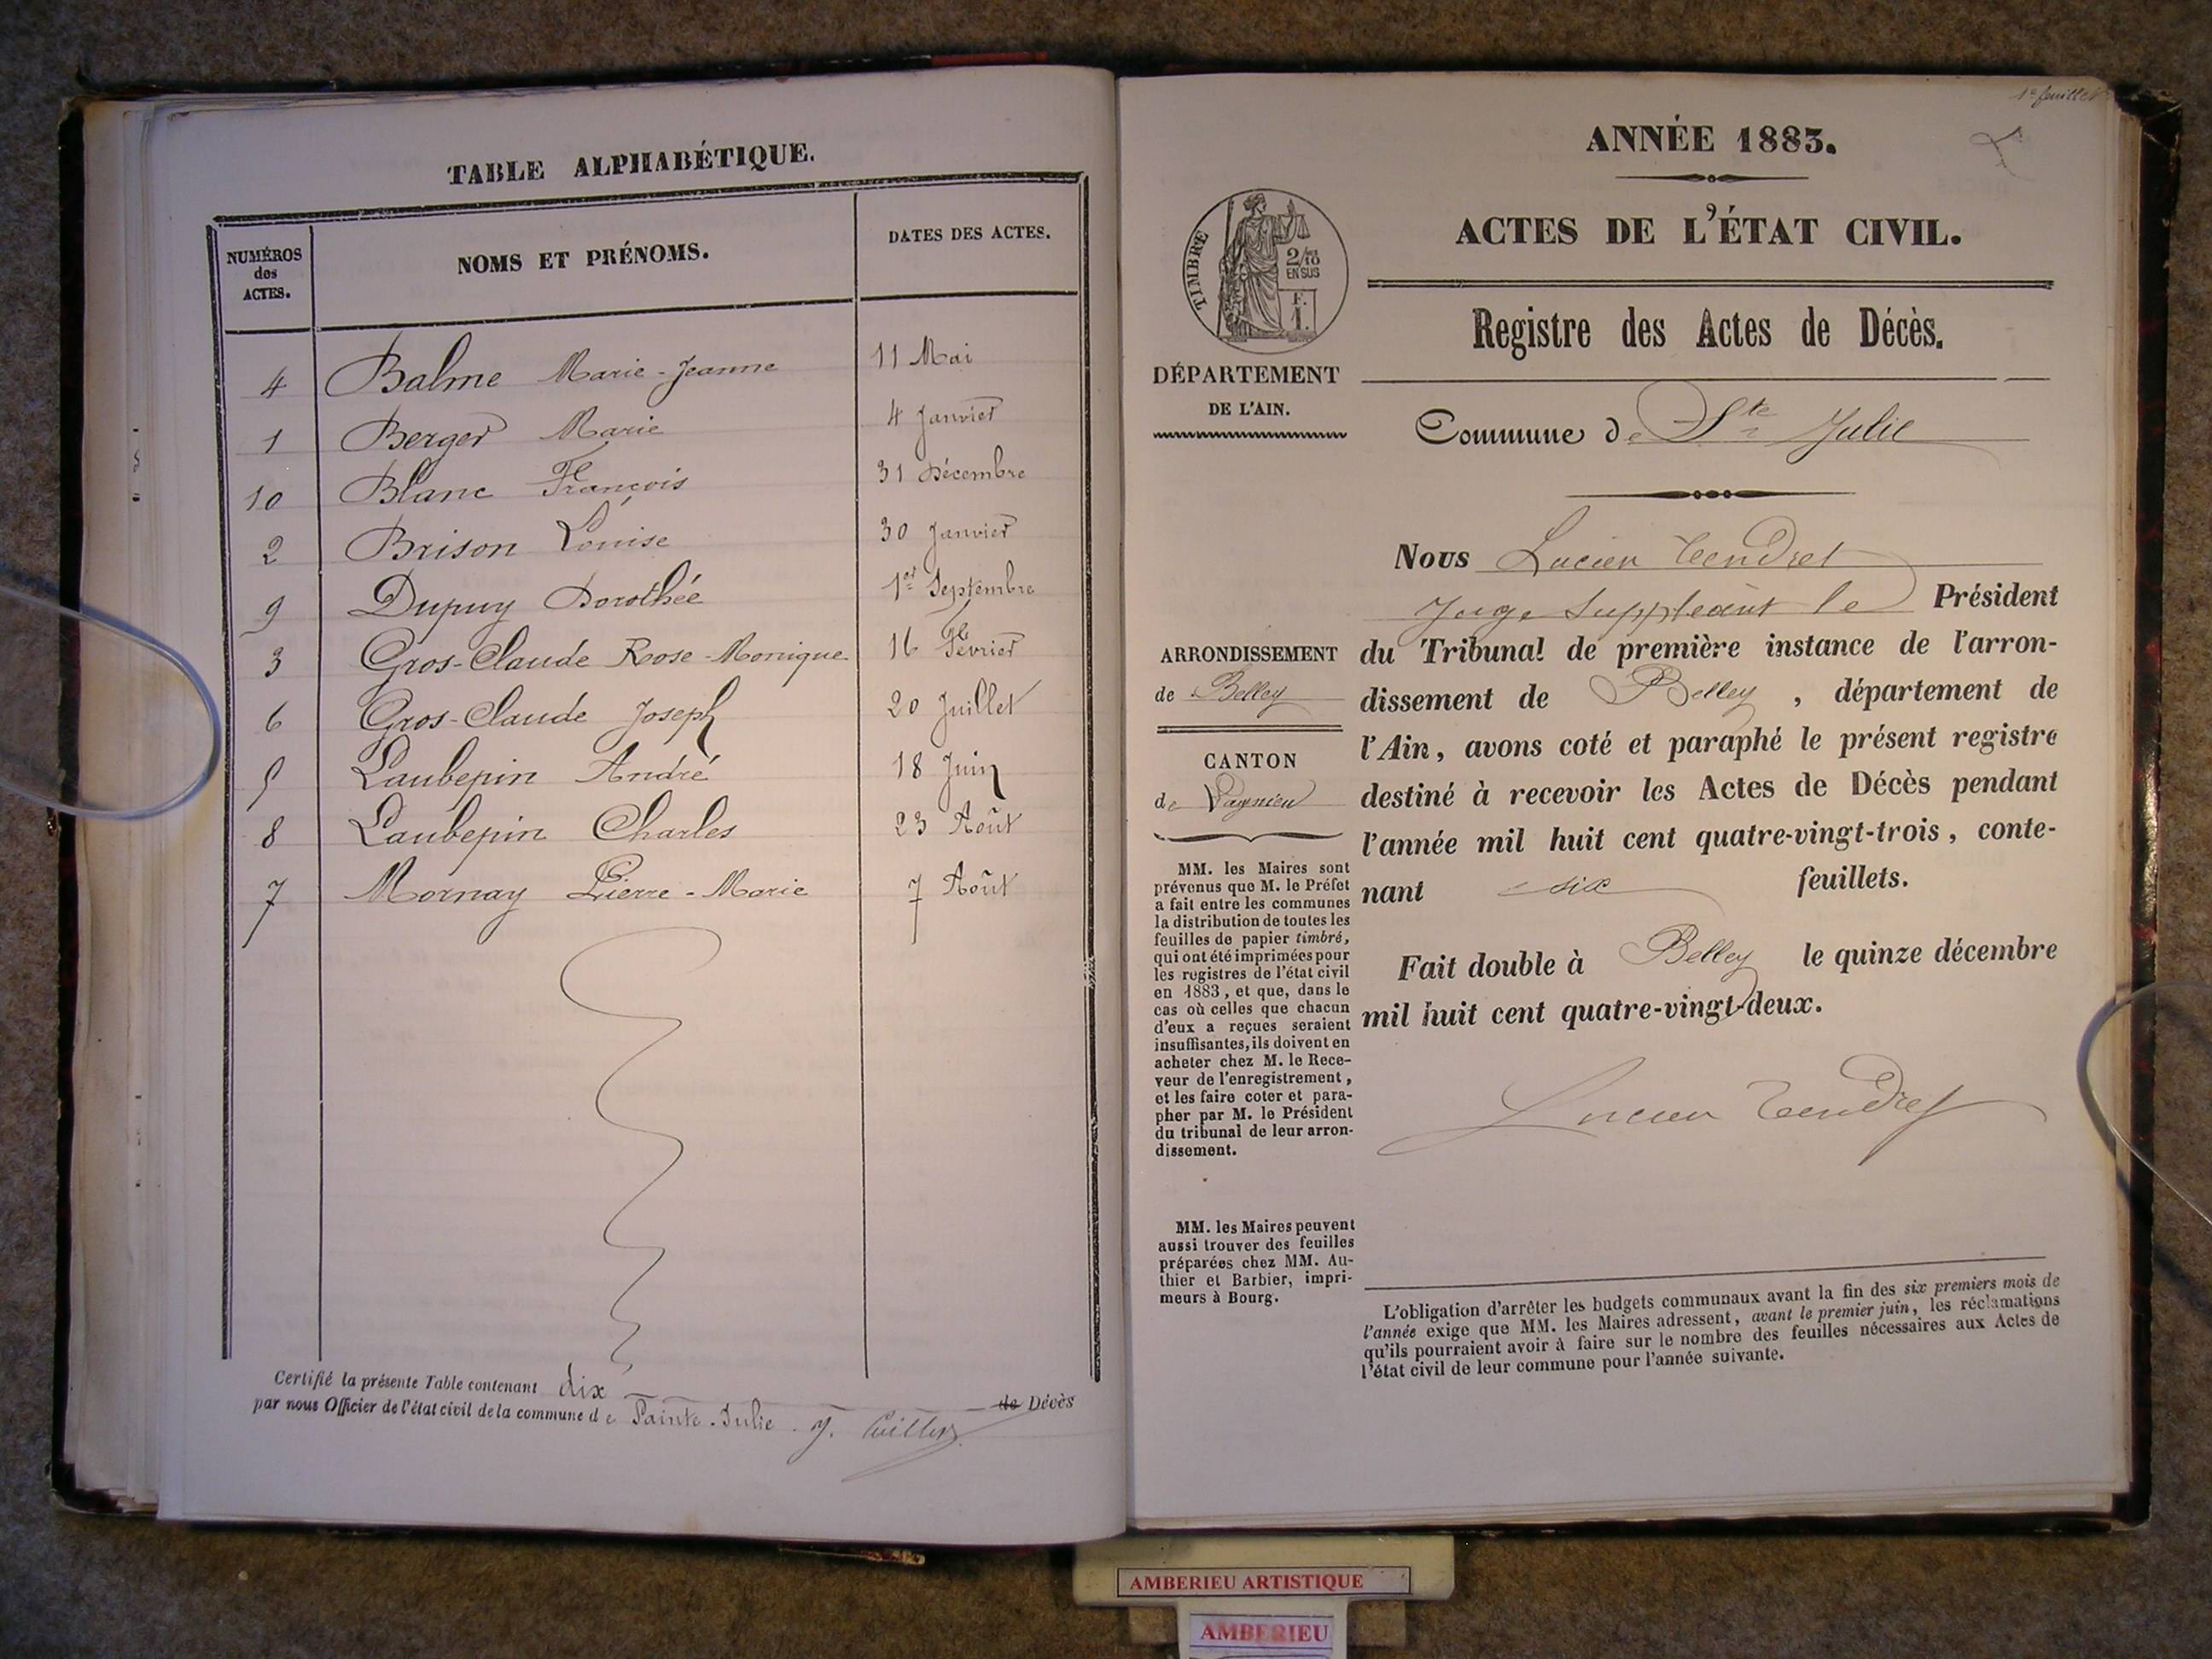 TABLE ALPHABÉTIQUE.
NUMÉROS des ACTES. NOMS ET PRÉNOMS. DATES DES ACTES.
4 Balme Marie-Jeanne 11 Mai
1 Berger Marie 4 Janvier
10 Blanc François 31 Décembre
2 Brison Louise 30 Janvier
9 Dupuy Dorothée 1er Septembre
3 Gros-Claude Rose-Monique 16 Février
6 Gros-Claude Joseph 20 Juillet
5 Laubepin André 18 Juin
8 Laubepin Charles 23 Août
7 Mornay Pierre-Marie 7 Août
Certifié la présente Table contenant dix de Décès
par nous Officier de l'état civil de la commune de Sainte-Julie. J.
1er feuillet
ANNÉE 1883.
ACTES DE L'ÉTAT CIVIL.
TIMBRE
2/10
EN SUS
F.
1.
Registre des Actes de Décès.
DÉPARTEMENT
DE L'AIN.
Commune de Ste Julie
Nous Lucien Tendret
Juge Suppléant le Président
du Tribunal de première instance de l'arron-
dissement de Belley, département de
l'Ain, avons coté et paraphé le présent registre
destiné à recevoir les Actes de Décès pendant
l'année mil huit cent quatre-vingt-trois, conte-
nant six feuillets.
Fait double à Belley le quinze décembre
mil huit cent quatre-vingt-deux.
Lucien Tendret
ARRONDISSEMENT
de Belley
CANTON
de Lagnieu
MM. les Maires sont
prévenus que M. le Préfet
a fait entre les communes
la distribution de toutes les
feuilles de papier timbré,
qui ont été imprimées pour
les registres de l'état civil
en 1883, et que, dans le
cas où celles que chacun
d'eux a reçues seraient
insuffisantes, ils doivent en
acheter chez M. le Rece-
veur de l'enregistrement,
et les faire coter et para-
pher par M. le Président
du tribunal de leur arron-
dissement.
MM. les Maires peuvent
aussi trouver des feuilles
préparées chez MM. Au-
thier et Barbier, impri-
meurs à Bourg.
L'obligation d'arrêter les budgets communaux avant la fin des six premiers mois de
l'année exige que MM. les Maires adressent, avant le premier juin, les réclamations
qu'ils pourraient avoir à faire sur le nombre des feuilles nécessaires aux Actes de
l'état civil de leur commune pour l'année suivante.
AMBERIEU ARTISTIQUE
AMBERIEU